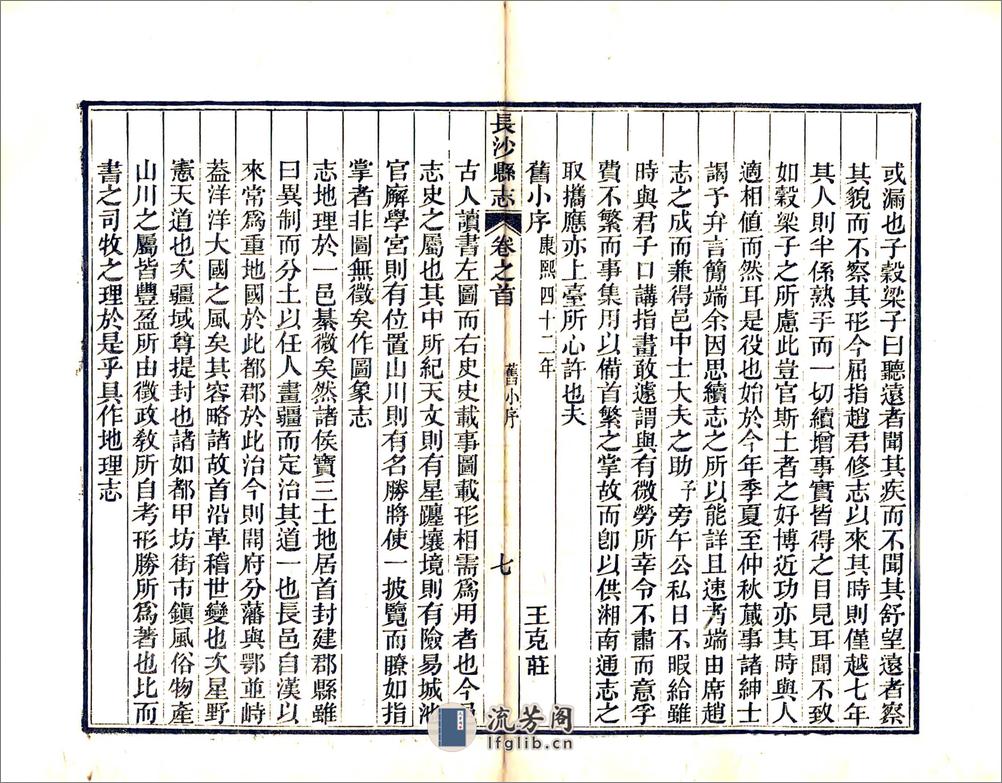 或漏也子穀梁子曰聽遠者聞其疾而不聞其舒望遠者察
其貌而不察其形今屈指趙君修志以來其時則僅越七年
其人則半係熟手而一切續增事實皆得之目見耳聞不致
如穀梁子之所慮此豈官斯土者之好博近功亦其時與人
適相値而然耳是役也始於今年季夏至仲秋蕆事諸紳士
謁予弁言簡端余因思續志之所以能詳且速者端由席趙
志之成而兼得邑中士大夫之助予旁午公私日不暇給雖
時與君子口講指畫敢遽謂與有微勞所幸令不肅而意孚
費不繁而事集用以備首繁之掌故而卽以供湘南通志之
取攜應亦上臺所心許也夫
舊小序康熙四十二年 王克莊
古人讀書左圖而右史史載事圖載形相需爲用者也今
志史之屬也其中所紀天文則有星躔壤境則有險易城池
官廨學宮則有位置山川則有名勝將使一披覽而瞭如指
掌者非圖無徵矣作圖象志
志地理於一邑綦微矣然諸侯寶三土地居首封建郡縣雖
曰異制而分土以任人畫疆而定治其道一也長邑自漢以
來常爲重地國於此都郡於此治今則開府分藩與鄂並峙
葢洋洋大國之風矣其容略諸故首沿革稽世變也次星野
憲天道也次疆域尊提封也諸如都甲坊街市鎭風俗物產
山川之屬皆豐盈所由徵政敎所自考形勝所爲著也比而
書之司牧之理於是乎具作地理志
長沙縣志 卷之首 舊小序 七
流芳阁
lfglib.cn